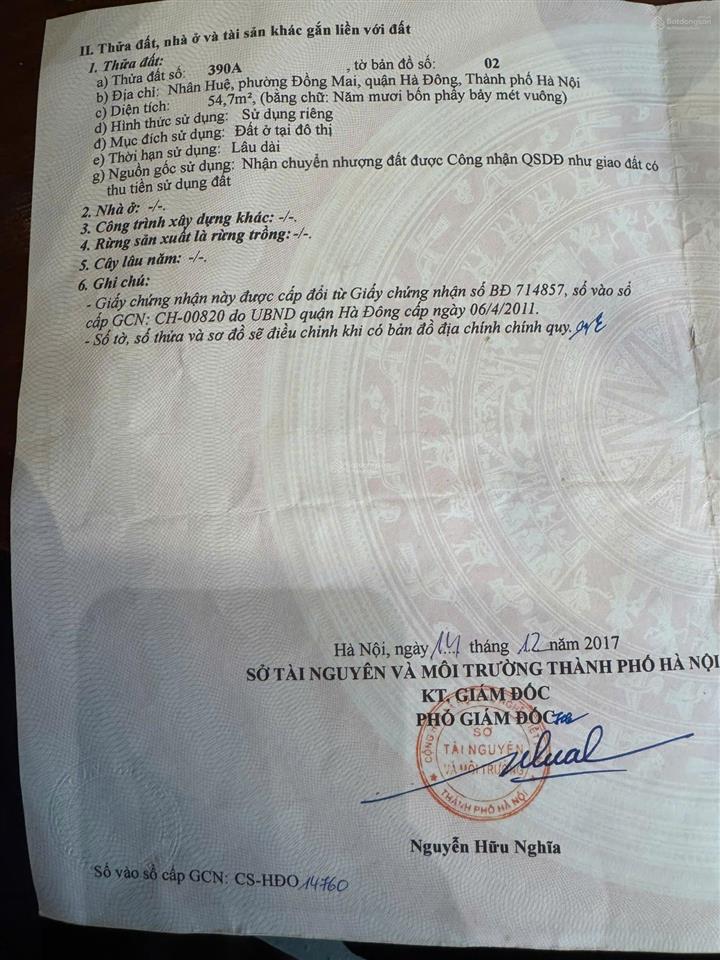 Batdongsan
II. Thửa đất, nhà ở và tài sản khác gắn liền với đất
1. Thửa đất:
a) Thửa đất số: 390A , tờ bản đồ số: 02
b) Địa chỉ: Nhân Huệ, phường Đồng Mai, quận Hà Đông, Thành phố Hà Nội
c) Diện tích: 54,7m², (bằng chữ: Năm mươi bốn phẩy bảy mét vuông)
d) Hình thức sử dụng: Sử dụng riêng
đ) Mục đích sử dụng: Đất ở tại đô thị
e) Thời hạn sử dụng: Lâu dài
g) Nguồn gốc sử dụng: Nhận chuyển nhượng đất được Công nhận QSDĐ như giao đất có
thu tiền sử dụng đất
2. Nhà ở: -/-.
3. Công trình xây dựng khác: -/-.
4. Rừng sản xuất là rừng trồng: -/-.
5. Cây lâu năm: -/-.
6. Ghi chú:
- Giấy chứng nhận này được cấp đổi từ Giấy chứng nhận số BĐ 714857, số vào sổ
cấp GCN: CH-00820 do UBND quận Hà Đông cấp ngày 06/4/2011.
- Số tờ, số thửa và sơ đồ sẽ điều chỉnh khi có bản đồ địa chính chính quy.
Hà Nội, ngày 14 tháng 12 năm 2017
SỞ TÀI NGUYÊN VÀ MÔI TRƯỜNG THÀNH PHỐ HÀ NỘI
KT. GIÁM ĐỐC
PHÓ GIÁM ĐỐC
SỞ
TÀI NGUYÊN
VÀ MÔI TRƯỜNG
THÀNH PHỐ HÀ NỘI
Nguyễn Hữu Nghĩa
Số vào sổ cấp GCN: CS-HĐO 14760